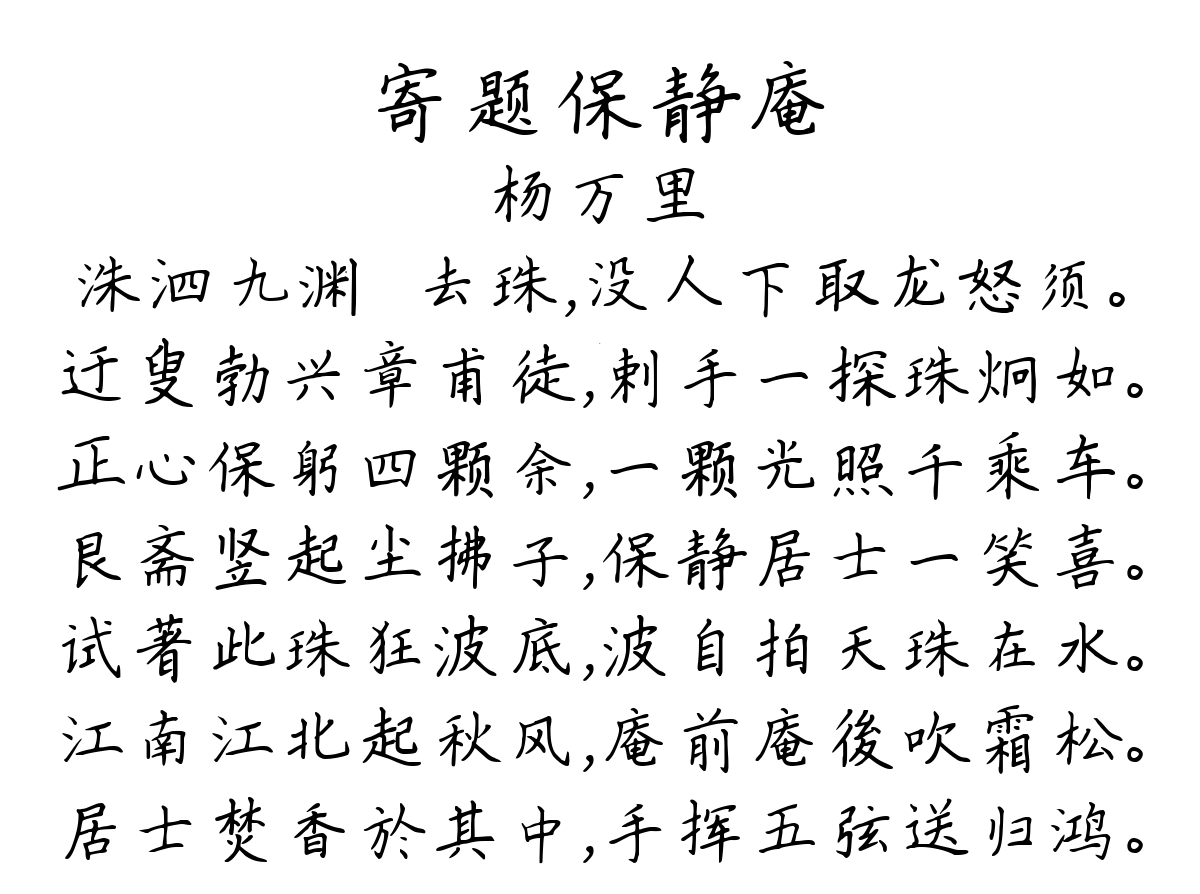 寄题保静庵
杨万里
洙泗九渊 去珠,没人下取龙怒须。
迂叟勃兴章甫徒,刺手一探珠炯如。
正心保躬四颗余,一颗光照千乘车。
艮斋竖起尘拂子,保静居士一笑喜。
试著此珠狂波底,波自拍天珠在水。
江南江北起秋风,庵前庵後吹霜松。
居士焚香於其中,手挥五弦送归鸿。